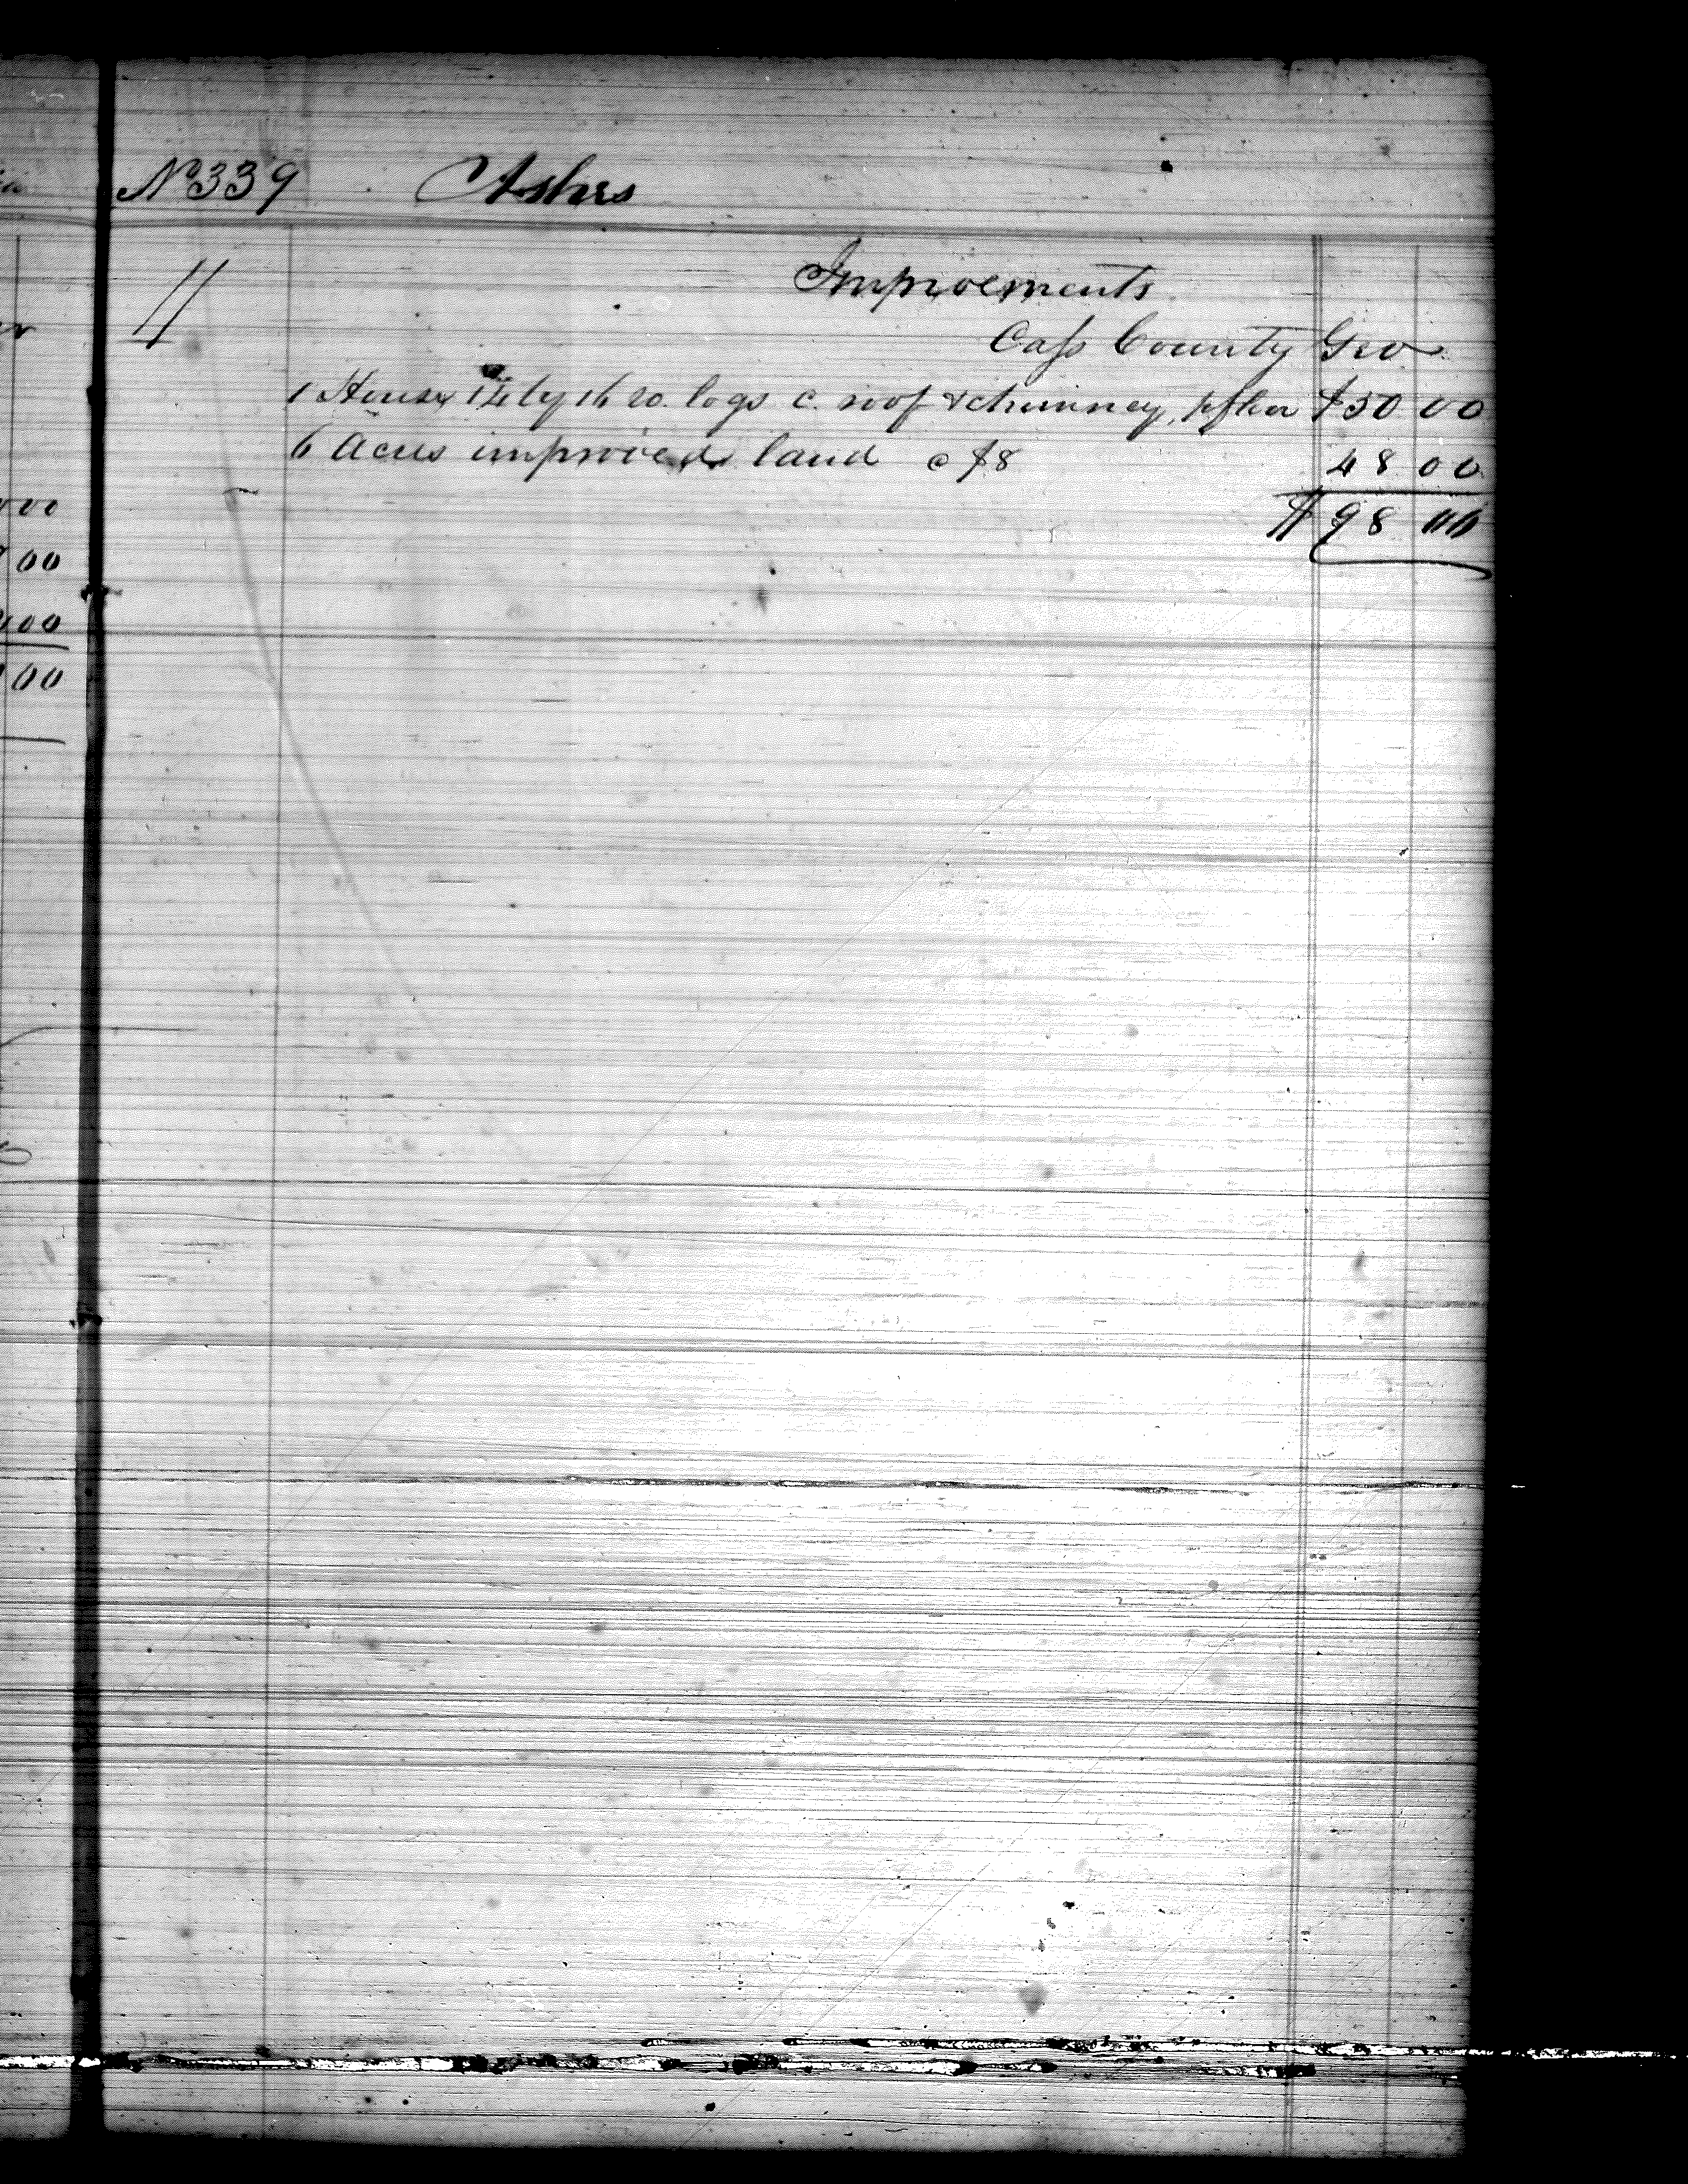 No 339 Ashes
Improvements
Cass County Geo
1 House 14 by 16 ro. logs c. roof & chimney, pflor $50 00
6 Acres improved land @ $8 48 00
$98 00
00
00
00
00